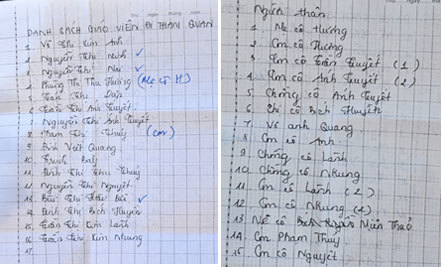 DANH SÁCH GIÁO VIÊN ĐI THAM QUAN
1 Võ Thị Kim Anh
2 Nguyễn Thị Minh ✓
3 Nguyễn Thị Như ✓
4 Phùng Thị Thu Hường (Mẹ cô H)
5 Trần Thị Dợn
6 Trần Thị Anh Tuyết
7 Nguyễn Thị Anh Tuyết
8 Phạm Thị Thúy (con)
9 Đinh Việt Quang
10
11 Đinh Thị Thu Thủy
12 Nguyễn Thị Nguyệt
13 Bùi Thị Bài ✓
14 Đinh Thị Bích Huyền
15 Trần Thị Kim Lành
16 Trần Thị Kim Nhung
17
Người thân
1 Mẹ cô Hường
2 Con cô Hường
3 Con cô Trần Tuyết (1)
4 Con cô Anh Tuyết (2)
5 Chồng cô Anh Tuyết
6 Chị cô Bích Huyền
7 Vợ anh Quang
8 Con cô Anh
9 Chồng cô Lành
10 Chồng cô Nhung
11 Con cô Lành (2)
12 Con cô Nhung (2)
13 Mẹ cô Thảo
14 Con Phạm Thúy
15 Con cô Nguyệt